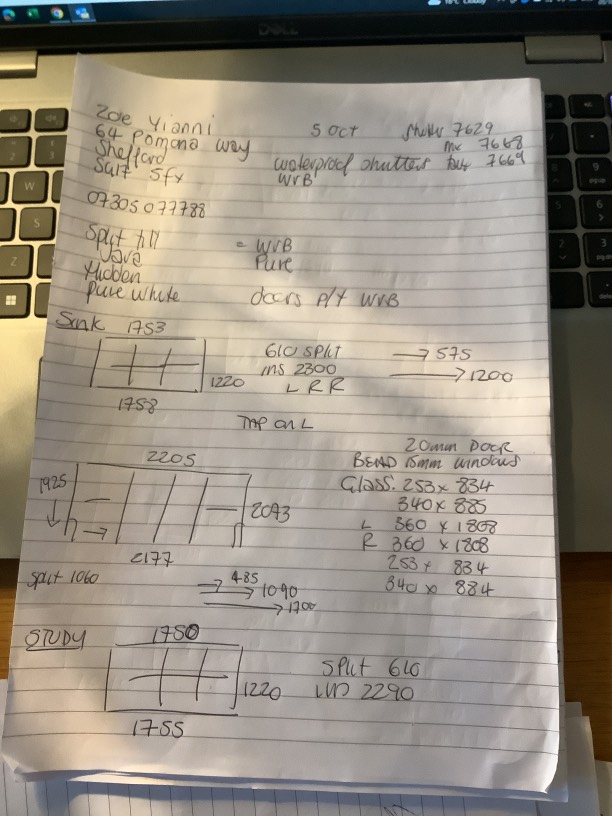 DELL
Zoe Yianni
5 Oct
Shutters 7629
64 Pomona Way
mx 7668
Shefford
waterproof shutters
7669
SG17 5fy
WVB
07305 077788
Split till
= WVB
Pure
Hidden
Pure White
doors P/t WVB
Sink 1753
610 split
→ 575
ms 2300
→ 1200
1220
L RR
1758
TAP on L
20mm DOOR
2205
BEAD 15mm windows
1925
Glass. 253 x 834
2093
340 x 885
L 360 x 1808
R 360 x 1808
2177
253 x 834
Split 1060
→ 485
340 x 884
→ 1090
→ 1700
STUDY 1750
Split 610
1220
2290
1755